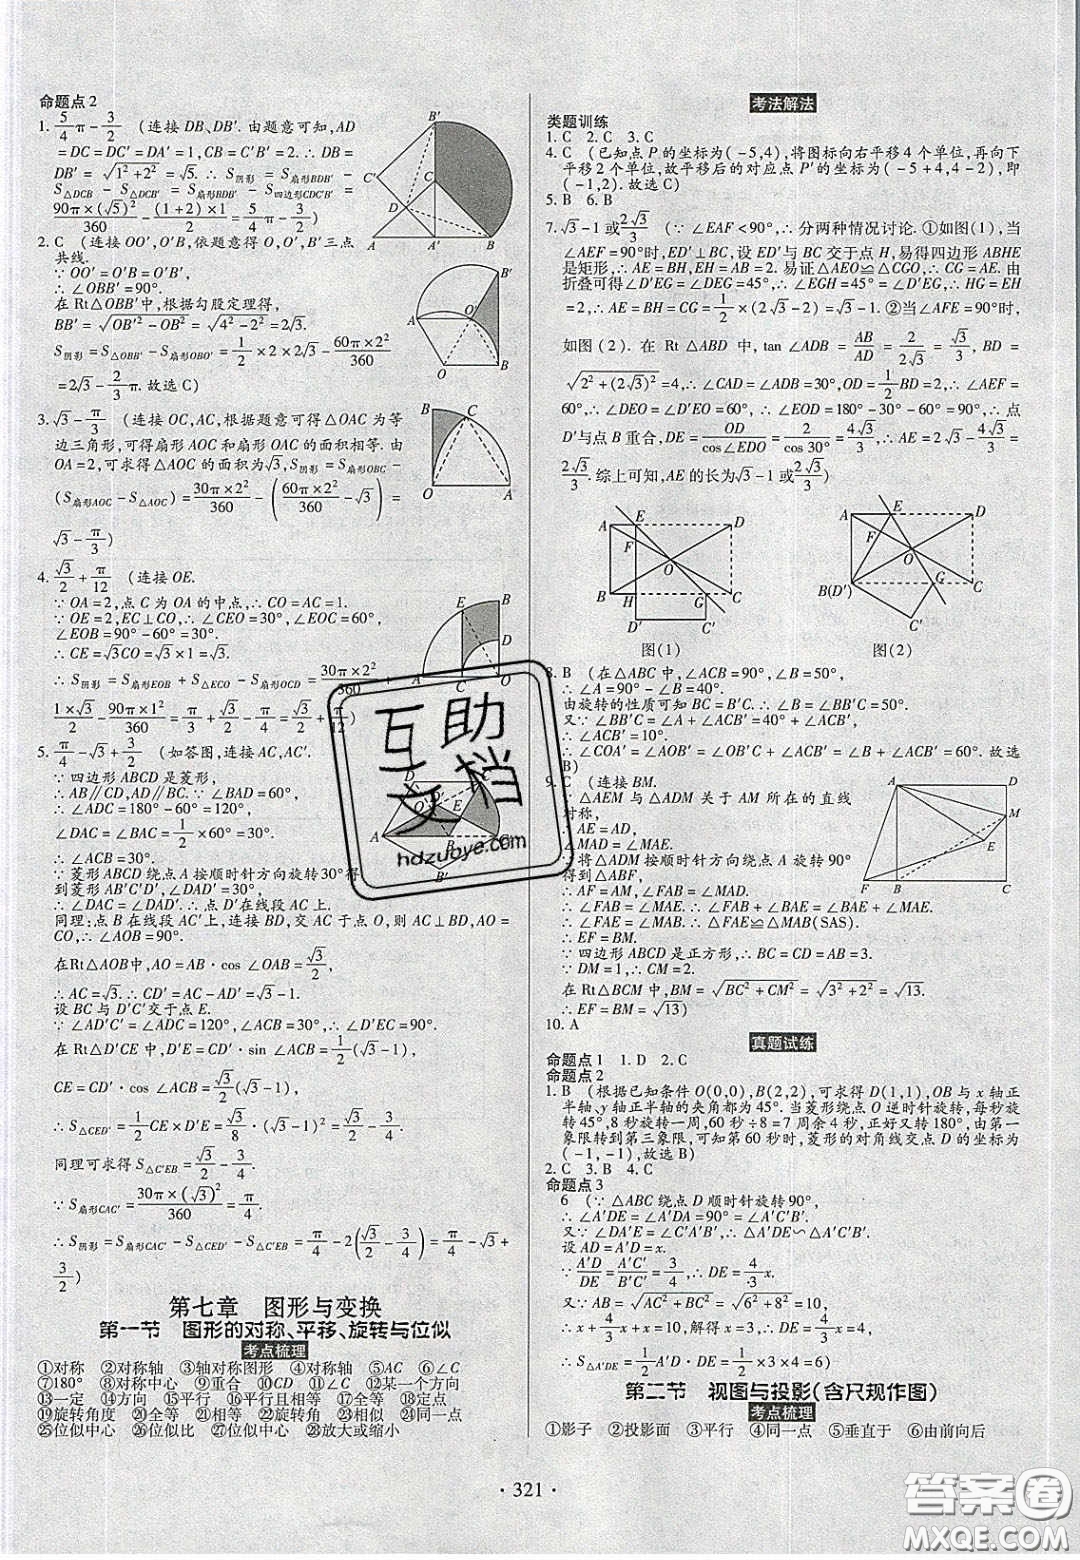 命题点2
1. 5/4π－3/2 (连接DB、DB′. 由题意可知,AD
＝DC＝DC′＝DA′＝1,CB＝C′B′＝2. ∴DB＝
DB′＝√(1²＋2²)＝√5. ∴S阴影＝S扇形BDB′－
S△DCB－S△DCB′＝S扇形BDB′－S四边形CDC′B′＝
90π×(√5)²/360－(1＋2)×1/2＝5π/4－3/2)
2. C (连接OO′,O′B,依题意得O,O′,B′三点
共线.
∵OO′＝O′B＝O′B′,
∴∠OBB′＝90°.
在Rt△OBB′中,根据勾股定理得,
BB′＝√(OB′²－OB²)＝√(4²－2²)＝2√3.
S阴影＝S△OBB′－S扇形OBO′＝1/2×2×2√3－60π×2²/360
＝2√3－2/3π. 故选C)
3. √3－π/3 (连接OC,AC,根据题意可得△OAC为等
边三角形,可得扇形AOC和扇形OAC的面积相等. 由
OA＝2,可求得△AOC的面积为√3,S阴影＝S扇形OBC－
(S扇形AOC－S△AOC)＝30π×2²/360－(60π×2²/360－√3)＝
√3－π/3)
4. √3/2＋π/12 (连接OE.
∵OA＝2,点C为OA的中点,∴CO＝AC＝1.
∵OE＝2,EC⊥CO,∴∠CEO＝30°,∠EOC＝60°,
∠EOB＝90°－60°＝30°.
∴CE＝√3CO＝√3×1＝√3.
∴S阴影＝S扇形EOB＋S△ECO－S扇形OCD＝30π×2²/360＋
1×√3/2－90π×1²/360＝π/3＋√3/2－π/4＝√3/2＋π/12)
5. π/4－√3＋3/2 (如答图,连接AC,AC′.
∵四边形ABCD是菱形,
∴AB∥CD,AD∥BC. ∵∠BAD＝60°,
∴∠ADC＝180°－60°＝120°,
∠DAC＝∠BAC＝1/2×60°＝30°＝∠ACD＝
∠ACB.
∵菱形ABCD绕点A按顺时针方向旋转30°得
到菱形AB′C′D′,∠D′AC′＝30°.
∴∠DAC＝∠D′AC′. ∴D′在线段AC上.
同理:点B在线段AC′上,连接BD,交AC于点O,则AC⊥BD,AO＝
CO,∴∠AOB＝90°.
在Rt△AOB中,AO＝AB·cos∠OAB＝√3/2,
∴AC＝√3. ∴CD′＝AC－AD′＝√3－1.
设BC与D′C′交于点E.
∵∠AD′C′＝∠ADC＝120°,∠ACB＝30°,∴∠D′EC＝90°.
在Rt△D′CE中,D′E＝CD′·sin∠ACB＝1/2(√3－1),
CE＝CD′·cos∠ACB＝√3/2(√3－1).
∴S△CED′＝1/2CE×D′E＝√3/8·(√3－1)²＝√3/2－3/4.
同理可求得S△C′EB＝√3/2－3/4.
∵S扇形CAC′＝30π×(√3)²/360＝π/4,
∴S阴影＝S扇形CAC′－S△CED′－S△C′EB＝π/4－2(√3/2－3/4)＝π/4－√3＋
3/2)
第七章 图形与变换
第一节 图形的对称、平移、旋转与位似
考点梳理
①对称 ②对称轴 ③轴对称图形 ④对称轴 ⑤AC ⑥∠C
⑦180° ⑧对称中心 ⑨重合 ⑩CD ⑪∠C ⑫某一个方向
⑬一定 ⑭方向 ⑮平行 ⑯平行且相等 ⑰全等 ⑱旋转中心
⑲旋转角度 ⑳全等 ㉑相等 ㉒相等 ㉓相似 ㉔同一点
㉕位似中心 ㉖位似比 ㉗位似中心 ㉘放大或缩小
考法解法
类题训练
1. C 2. C 3. C
4. C (已知点P的坐标为(－5,4),将图标向右平移4个单位,再向下
平移2个单位,故平移后的对应点P′的坐标为(－5＋4,4－2),即
(－1,2). 故选C)
5. B 6. B
7. √3－1或2√3/3 (∵∠EAF＜90°,∴分两种情况讨论. ①如图(1),当
∠AEF＝90°时,ED′⊥BC,设ED′与BC交于点H,易得四边形ABHE
是矩形,∴AE＝BH,EH＝AB＝2. 易证△AEO≌△CGO,∴CG＝AE. 由
折叠可得∠D′EG＝∠DEG＝45°,∴∠EGH＝45°＝∠D′EG,∴HG＝EH
＝2,∴AE＝BH＝CG＝1/2×(2√3－2)＝√3－1. ②当∠AFE＝90°时,
如图(2). 在Rt△ABD中,tan∠ADB＝AB/AD＝2/2√3＝√3/3,BD＝
√(2²＋(2√3)²)＝4,∴∠CAD＝∠ADB＝30°,OD＝1/2BD＝2,∴∠AEF＝
60°,∴∠DEO＝∠D′EO＝60°,∴∠EOD＝180°－30°－60°＝90°,∴点
D′与点B重合,DE＝OD/cos∠EDO＝2/cos30°＝4√3/3,∴AE＝2√3－4√3/3＝
2√3/3. 综上可知,AE的长为√3－1或2√3/3)
图(1)
图(2)
8. B (在△ABC中,∠ACB＝90°,∠B＝50°,
∴∠A＝90°－∠B＝40°.
由旋转的性质可知BC＝B′C. ∴∠B＝∠BB′C＝50°.
又∵∠BB′C＝∠A＋∠ACB′＝40°＋∠ACB′,
∴∠ACB′＝10°.
∴∠COA′＝∠AOB′＝∠OB′C＋∠ACB′＝∠B＋∠ACB′＝60°. 故选
B)
9. C (连接BM.
∵△AEM与△ADM关于AM所在的直线
对称,
∴AE＝AD,
∠MAD＝∠MAE.
∵将△ADM按顺时针方向绕点A旋转90°
得到△ABF,
∴AF＝AM,∠FAB＝∠MAD.
∴∠FAB＝∠MAE. ∴∠FAB＋∠BAE＝∠BAE＋∠MAE.
∴∠FAE＝∠MAB. ∴△FAE≌△MAB(SAS).
∴EF＝BM.
∵四边形ABCD是正方形,∴BC＝CD＝AB＝3.
∵DM＝1,∴CM＝2.
在Rt△BCM中,BM＝√(BC²＋CM²)＝√(3²＋2²)＝√13.
∴EF＝BM＝√13)
10. A
真题试练
命题点1 1. D 2. C
命题点2
1. B (根据已知条件O(0,0),B(2,2),可求得D(1,1),OB与x轴正
半轴、y轴正半轴的夹角都为45°. 当菱形绕点O逆时针旋转,每秒旋
转45°,8秒旋转一周,60秒÷8＝7周余4秒,正好又转180°,由第一
象限转到第三象限,可知第60秒时,菱形的对角线交点D的坐标为
(－1,－1),故选B)
2. C 3. B 4. C
命题点3
6 (∵△ABC绕点D顺时针旋转90°,
∴∠A′DE＝∠A′DA＝90°＝∠A′C′B′.
又∵∠DA′E＝∠C′A′B′,∴△A′DE∽△A′C′B′.
设AD＝A′D＝x.
∵A′D/DE＝A′C′/B′C′＝3/4,∴DE＝4/3x.
又∵AB＝√(AC²＋BC²)＝√(6²＋8²)＝10,
∴x＋4/3x＋3＝10. ∴x＝3,DE＝4.
∴S△A′DE＝1/2A′D·DE＝1/2×3×4＝6)
第二节 视图与投影(含尺规作图)
考点梳理
①影子 ②投影面 ③平行 ④同一点 ⑤垂直于 ⑥由前向后
· 321 ·
互助文档
hdzuoye.com
答案圈
MXQE.COM